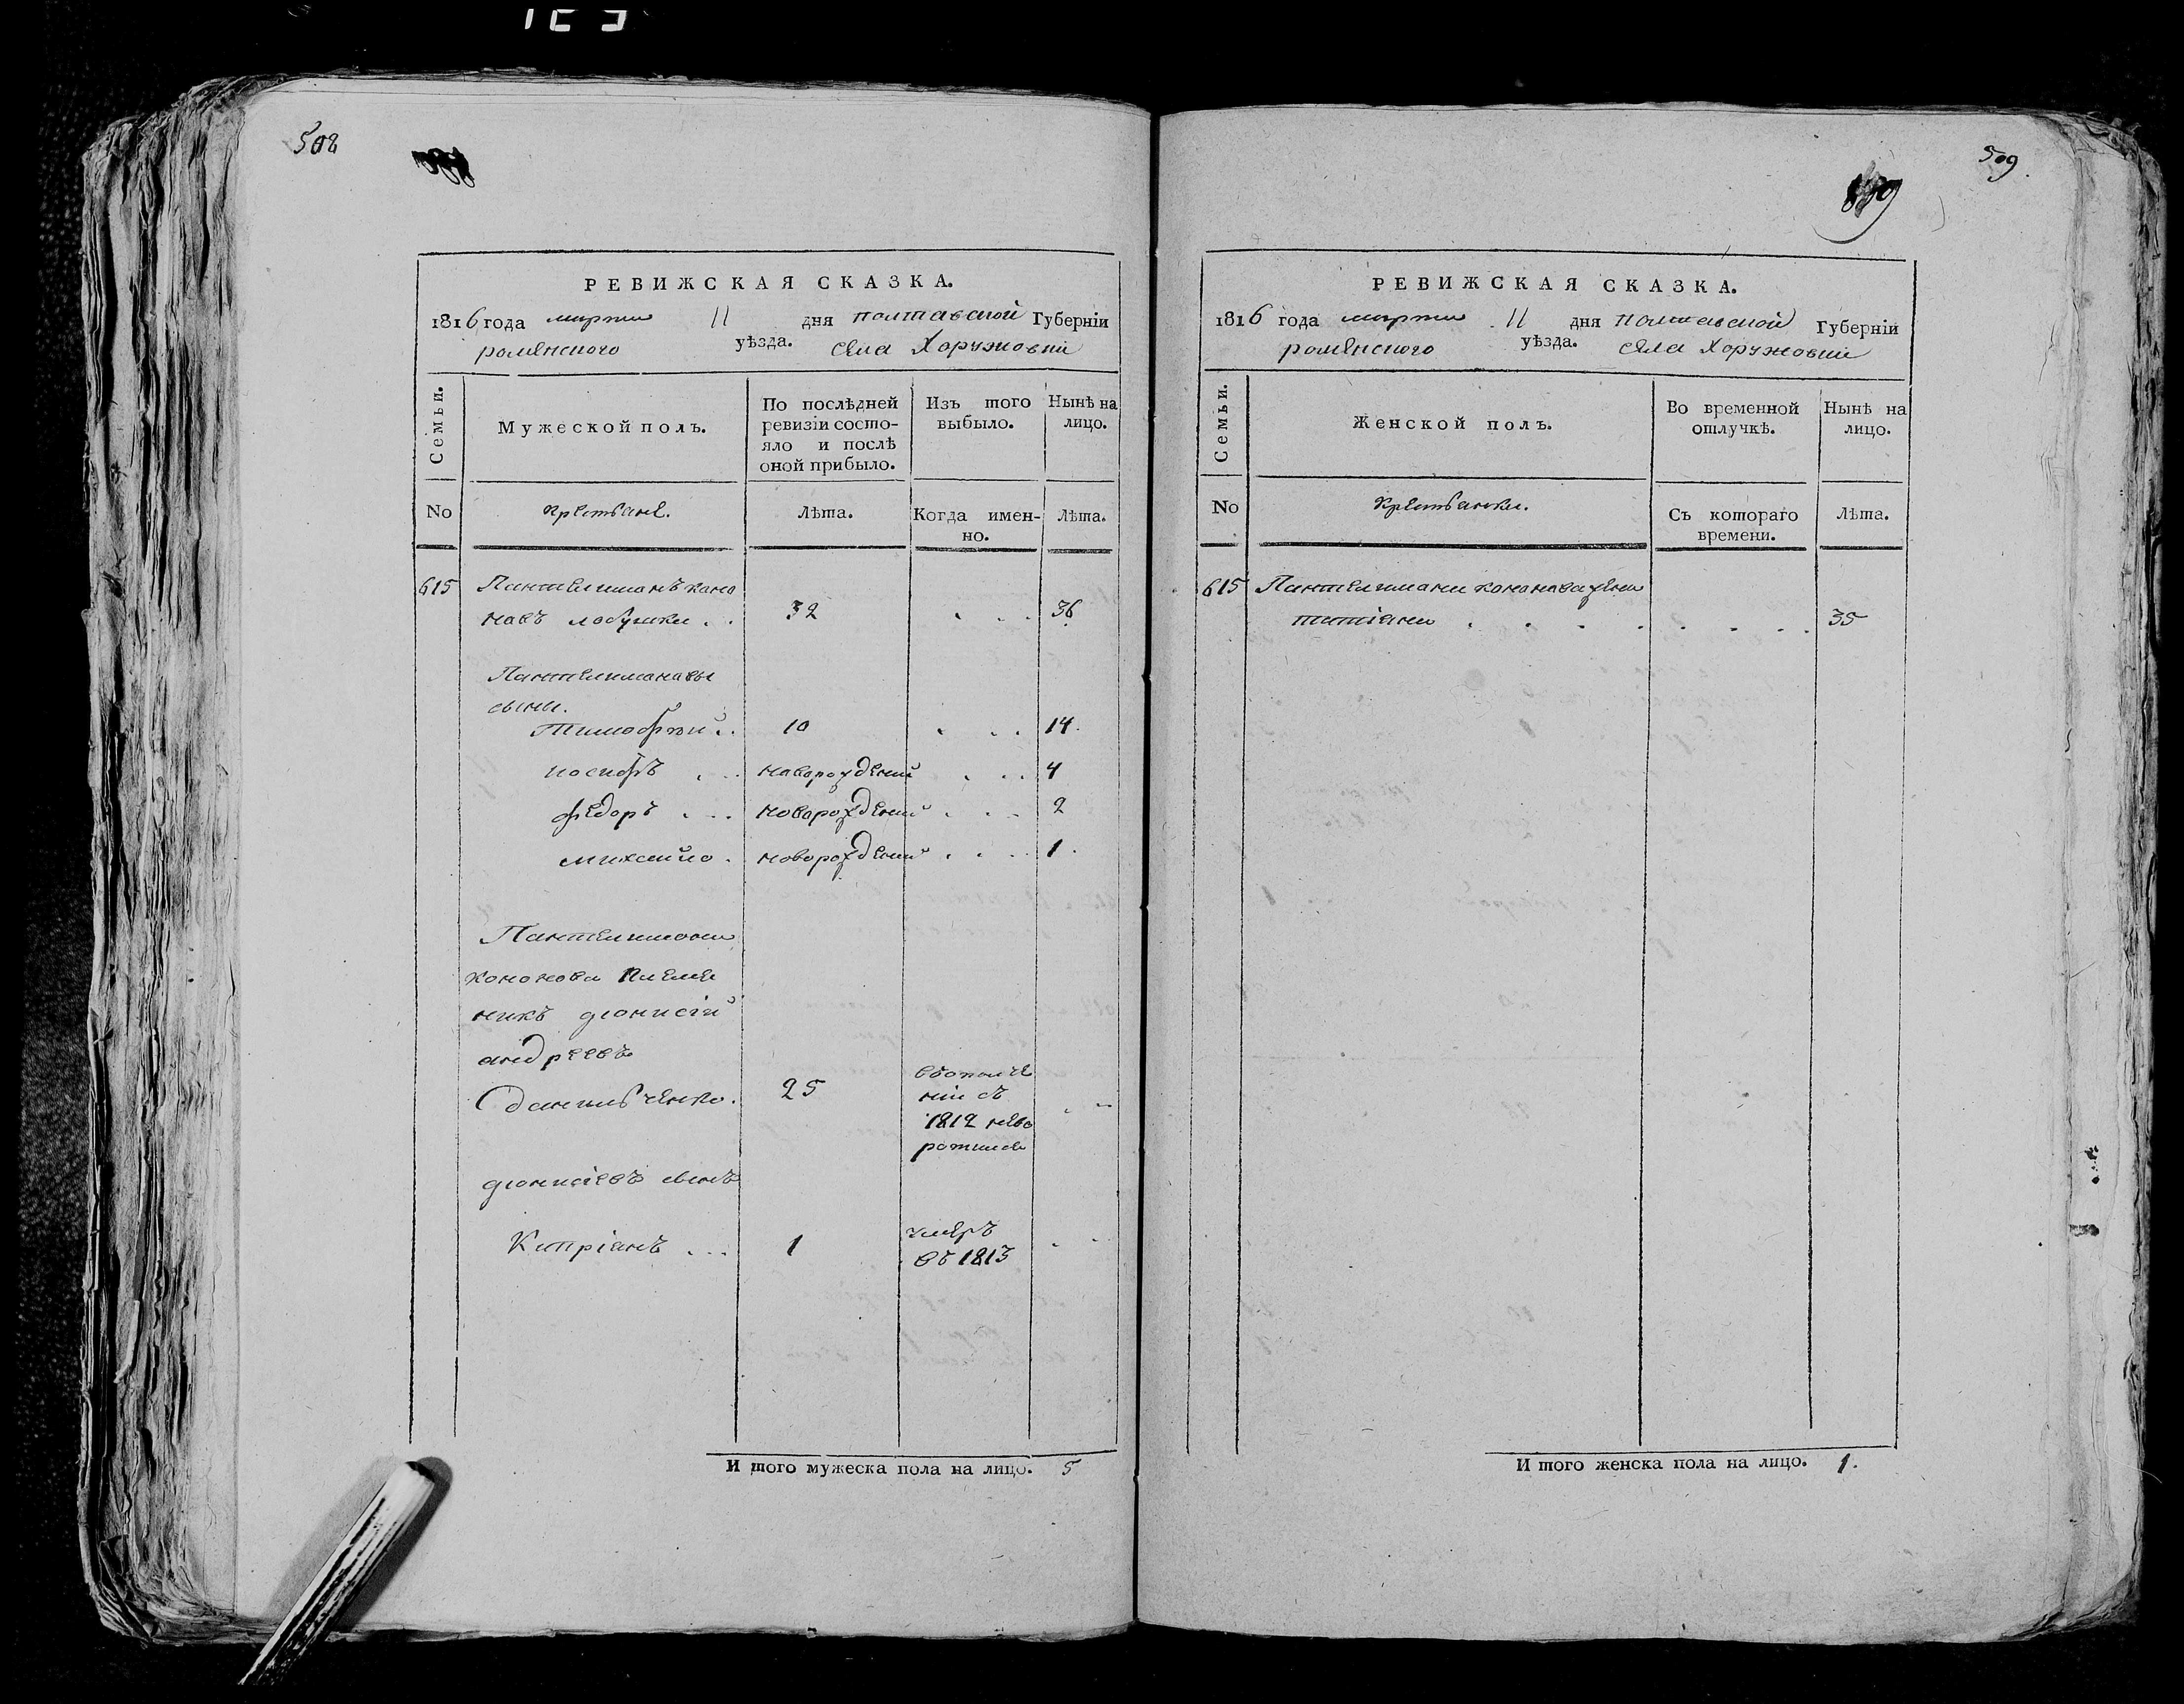 508
РЕВИЖСКАЯ СКАЗКА.
1816 года марта 11 дня полтавской Губерніи
роменского уѣзда. села Хоружовки
Семьи.
Мужеской полъ.
По послѣдней ревизіи состо-
яло и послѣ
оной прибыло.
Изъ того
выбыло.
Нынѣ на
лицо.
No
крестьяне.
лѣта.
Когда имен-
но.
лѣта.
615 Пантелимонъ коно
новъ . . 32 . . . 36
Пантелимоновы
сыны.
Тимофѣй . . 10 . . . 14.
иосифъ . . новорождений . . . 4
федоръ . . . новорождений . . . 2
михайло . новорождений . . . 1.
Пантелимона
кононова племе
никъ дионисій
андреевъ
данильченко. 25
въополче
ніи съ
1812 нево
ротился
дионисіевъ сынъ
Кипріанъ . . . 1
умеръ
въ 1813
И того мужеска пола на лицо. 5
509
РЕВИЖСКАЯ СКАЗКА.
1816 года марта 11 дня полтавской Губерніи
роменского уѣзда. села Хоружовки
Семьи.
Женской полъ.
Во временной
отлучкѣ.
Нынѣ на
лицо.
No
крестьянки.
Съ котораго
времени.
лѣта.
615 Пантелимона кононова жена
татіана . . . . . . . . 35
И того женска пола на лицо. 1.